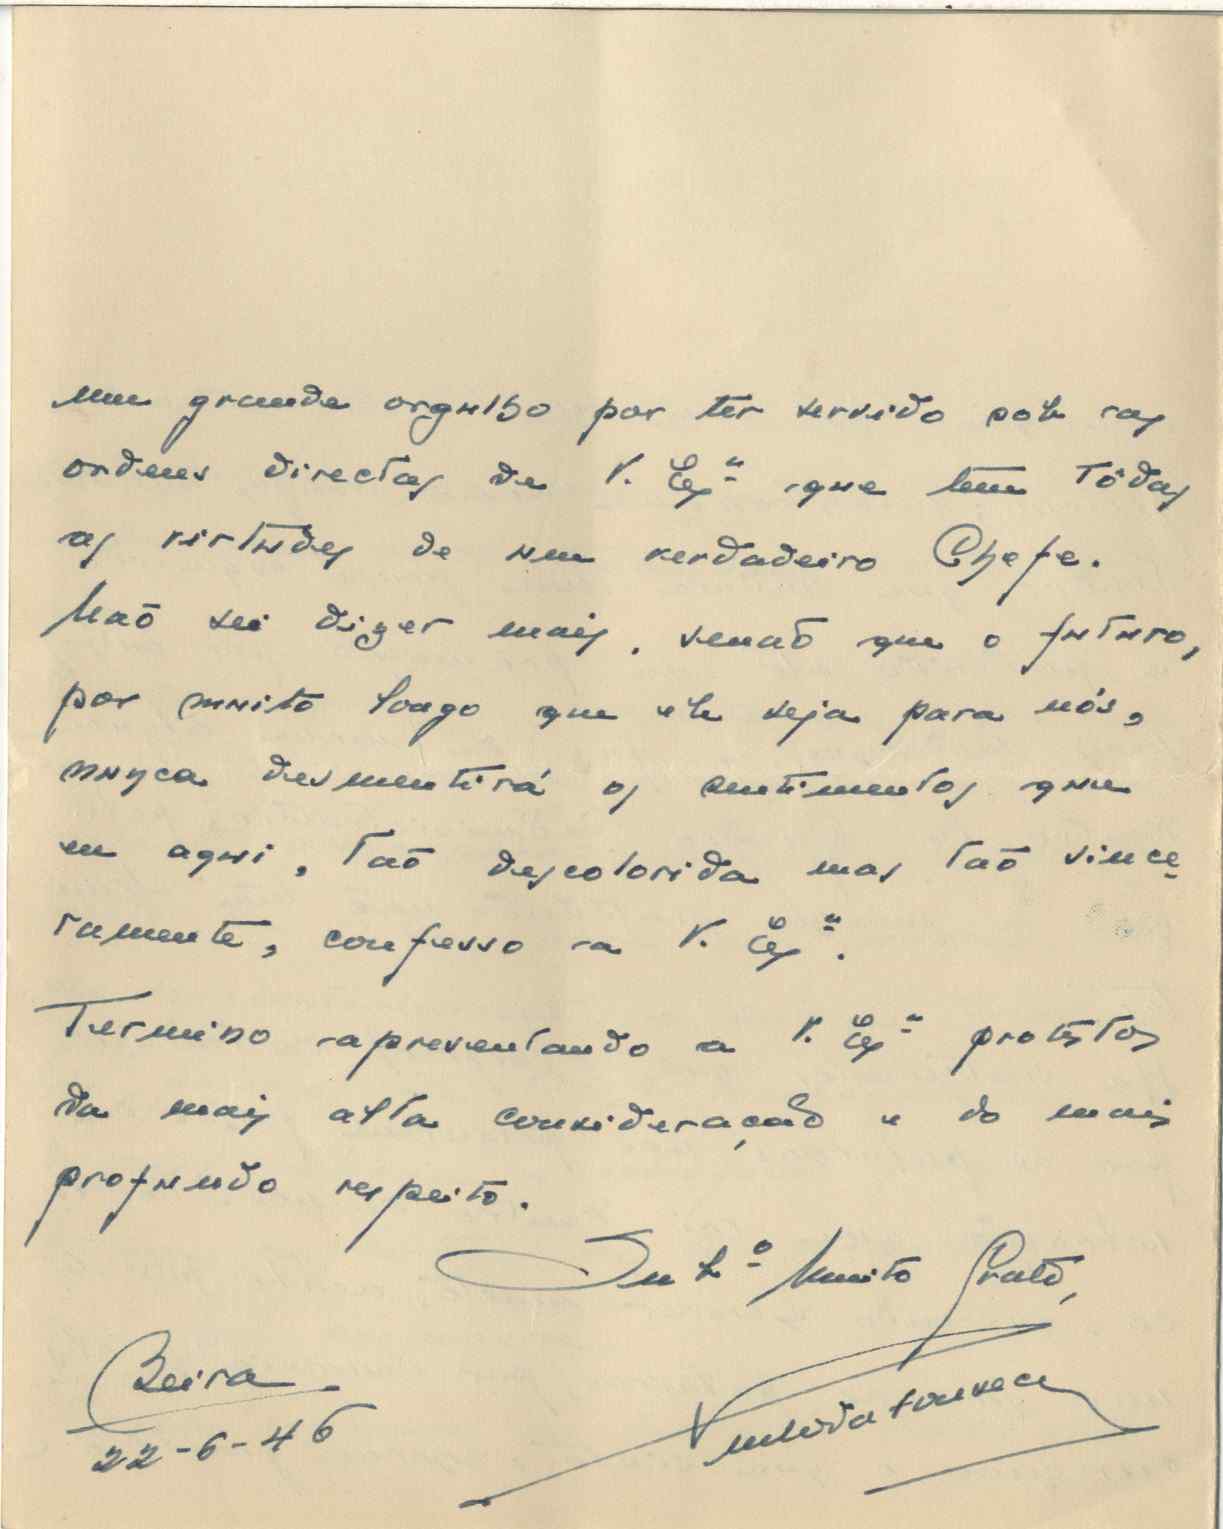 um grande orgulho por ter servido sob as
ordens directas de V. Exª que tem tôdas
as virtudes de um verdadeiro Chefe.
Não sei dizer mais, senão que o futuro,
por muito longo que êle seja para nós,
nunca desmentirá os sentimentos que
eu aqui, tão descolorida mas tão since
ramente, confesso a V. Exª.
Termino apresentando a V. Exª protestos
da mais alta consideração e do mais
profundo respeito.
Subº Muito Grato,
Beira
22-6-46
da Fonseca